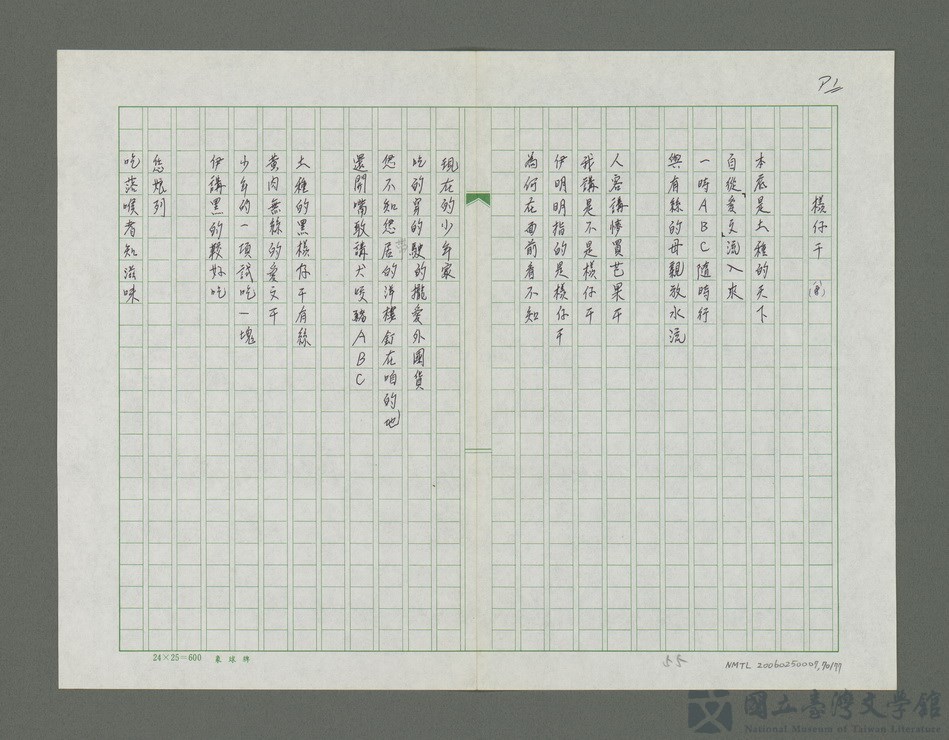 P1
檨仔干 (第)
本底是土種的天下
自從「愛文」流入來
一時ABC隨時行
與有絲的母親放水流
人客講慘買芒果干
我講是不是檨仔干
伊明明指的是檨仔干
為何在面前看不知
現在的少年家
吃的胃的駛的攏愛外國貨
您不知您居的洋樓釘在咱的地
還開嘴敢講犬咬豬ABC
土種的黑檨仔干有絲
黃肉無絲的愛文干
少年的一項試吃一塊
伊講黑的較好吃
恁娘列
吃落喉者知滋味
24×25=600 象球牌
55
NMTL 20060250009,70/77
國立臺灣文學館
National Museum of Taiwan Literature